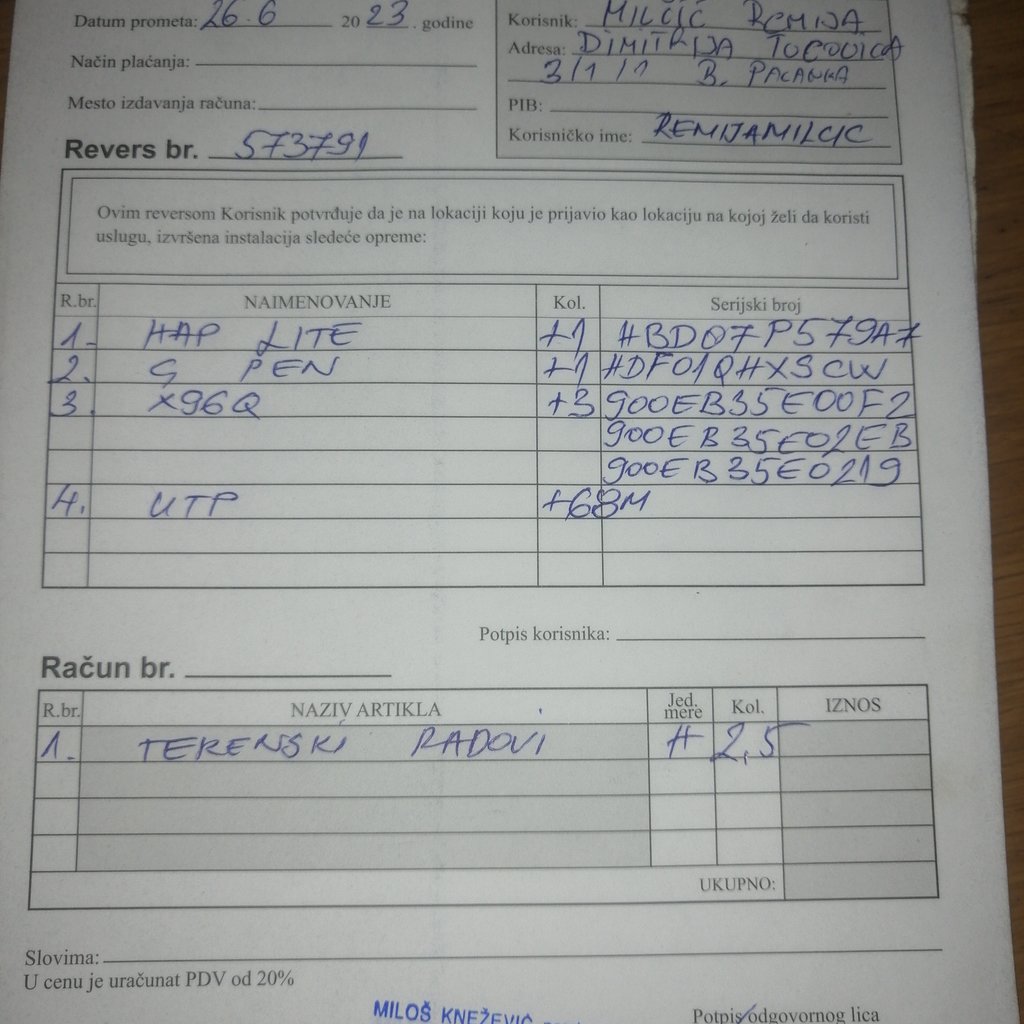 Datum prometa: 26.6 2023. godine
Način plaćanja:
Mesto izdavanja računa:
Revers br. 573791
Korisnik: MILČIĆ REMIJA
Adresa: DIMITRIJA TUCOVIĆA
3/1/1 B. PALANKA
PIB:
Korisničko ime: REMIJAMILCIC
Ovim reversom Korisnik potvrđuje da je na lokaciji koju je prijavio kao lokaciju na kojoj želi da koristi
uslugu, izvršena instalacija sledeće opreme:
R.br. NAIMENOVANJE Kol. Serijski broj
1. HAP LITE +1 HBD07P579A7
2. G PEN +1 HDF01QHXSCW
3. X96Q +3 900EB35E00F2
900EB35E02EB
900EB35E0219
4. UTP +68M
Potpis korisnika:
Račun br.
R.br. NAZIV ARTIKLA Jed. mere Kol. IZNOS
1. TERENSKI RADOVI H 2,5
UKUPNO:
Slovima:
U cenu je uračunat PDV od 20%
MILOŠ KNEŽEVIĆ
Potpis odgovornog lica